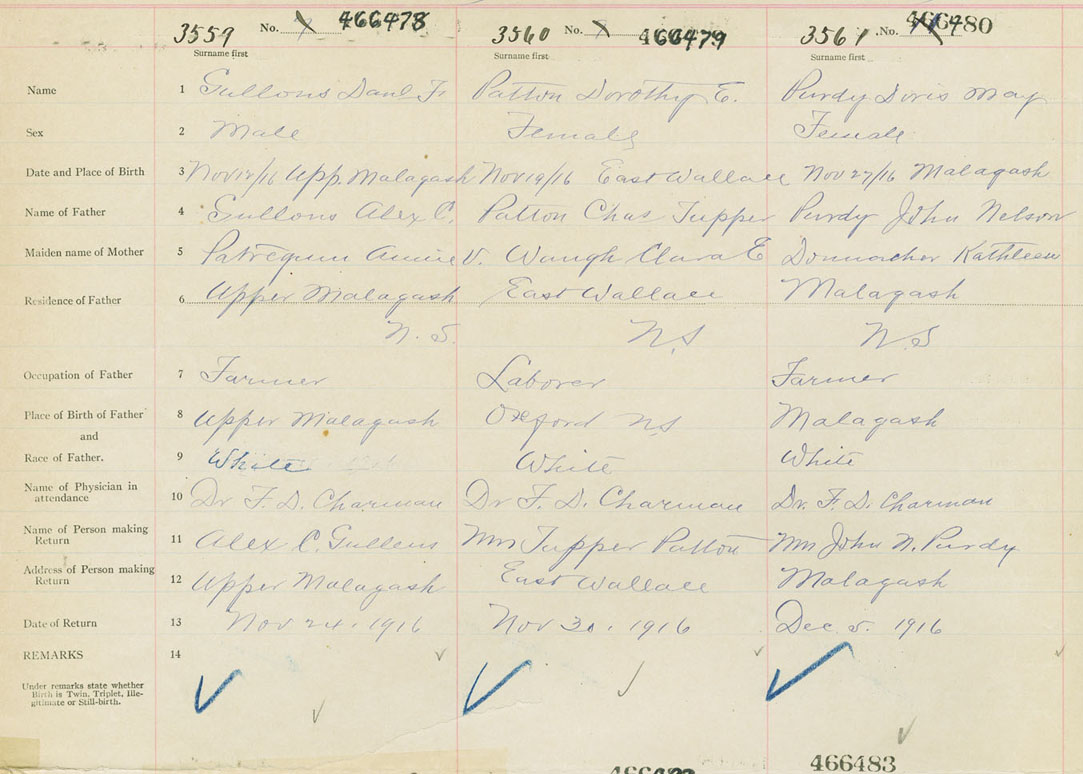 3559 No. X 466478 3560 No. X 466479 3561 No. 466480
Surname first Surname first Surname first
Name 1 Gullons Danl F. Patton Dorothy E. Purdy Doris May
Sex 2 Male Female Female
Date and Place of Birth 3 Nov 12/16 Upp. Malagash Nov 19/16 East Wallace Nov 27/16 Malagash
Name of Father 4 Gullons Alex C. Patton Chas Tupper Purdy John Nelson
Maiden name of Mother 5 Patrequin Annie V. Waugh Clara E Kathleen
Residence of Father 6 Upper Malagash East Wallace Malagash
N.S. N.S N.S
Occupation of Father 7 Farmer Laborer Farmer
Place of Birth of Father 8 Upper Malagash Oxford N.S Malagash
and
Race of Father. 9 White White White
Name of Physician in
attendance 10 Dr F. D. Charman Dr F. D. Charman Dr. F. D. Charman
Name of Person making
Return 11 Alex C. Gullens Mrs Tupper Patton Mrs John N. Purdy
Address of Person making
Return 12 Upper Malagash East Wallace Malagash
Date of Return 13 Nov 24. 1916 Nov 30. 1916 Dec 5. 1916
REMARKS 14
Under remarks state whether
Birth is Twin, Triplet, Ille-
gitimate or Still-birth.
466483